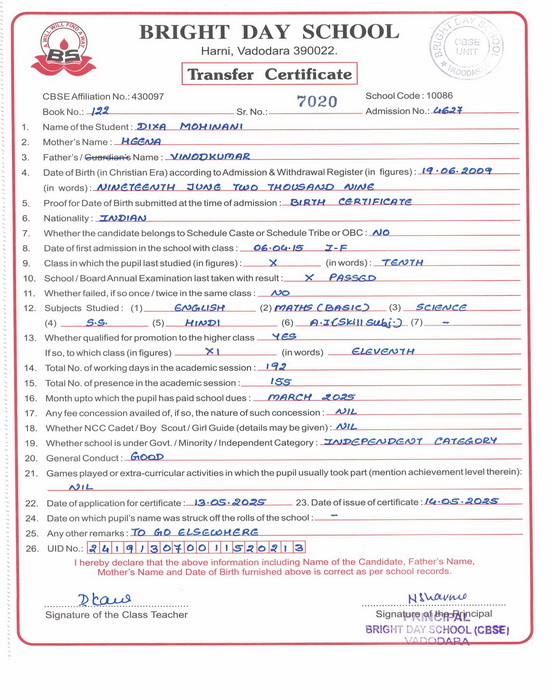 A WILL WILL FIND A WAY
BS
BRIGHT DAY SCHOOL
Harni, Vadodara 390022.
BRIGHT DAY SCHOOL
CBSE UNIT
VADODARA
Transfer Certificate
CBSE Affiliation No.: 430097 School Code : 10086
Book No.: 122 Sr. No.: 7020 Admission No.: 4627
1. Name of the Student : DIXA MOHINANI
2. Mother's Name : HEENA
3. Father's / Guardian's Name : VINODKUMAR
4. Date of Birth (in Christian Era) according to Admission & Withdrawal Register (in figures) : 19.06.2009
(in words) : NINETEENTH JUNE TWO THOUSAND NINE
5. Proof for Date of Birth submitted at the time of admission : BIRTH CERTIFICATE
6. Nationality : INDIAN
7. Whether the candidate belongs to Schedule Caste or Schedule Tribe or OBC : NO
8. Date of first admission in the school with class : 06.04.15 I-F
9. Class in which the pupil last studied (in figures) : X (in words) : TENTH
10. School / Board Annual Examination last taken with result : X PASSED
11. Whether failed, if so once / twice in the same class : NO
12. Subjects Studied : (1) ENGLISH (2) MATHS (BASIC) (3) SCIENCE
(4) S.S. (5) HINDI (6) A.I (Skill Subj.) (7) -
13. Whether qualified for promotion to the higher class YES
If so, to which class (in figures) XI (in words) ELEVENTH
14. Total No. of working days in the academic session : 192
15. Total No. of presence in the academic session : 155
16. Month upto which the pupil has paid school dues : MARCH 2025
17. Any fee concession availed of, if so, the nature of such concession : NIL
18. Whether NCC Cadet / Boy Scout / Girl Guide (details may be given) : NIL
19. Whether school is under Govt. / Minority / Independent Category : INDEPENDENT CATEGORY
20. General Conduct : GOOD
21. Games played or extra-curricular activities in which the pupil usually took part (mention achievement level therein):
NIL
22. Date of application for certificate : 13.05.2025 23. Date of issue of certificate : 14.05.2025
24. Date on which pupil's name was struck off the rolls of the school : -
25. Any other remarks : TO GO ELSEWHERE
26. UID No.: 241913070011520213
I hereby declare that the above information including Name of the Candidate, Father's Name,
Mother's Name and Date of Birth furnished above is correct as per school records.
Signature of the Class Teacher Signature of the Principal
PRINCIPAL
BRIGHT DAY SCHOOL (CBSE)
VADODARA